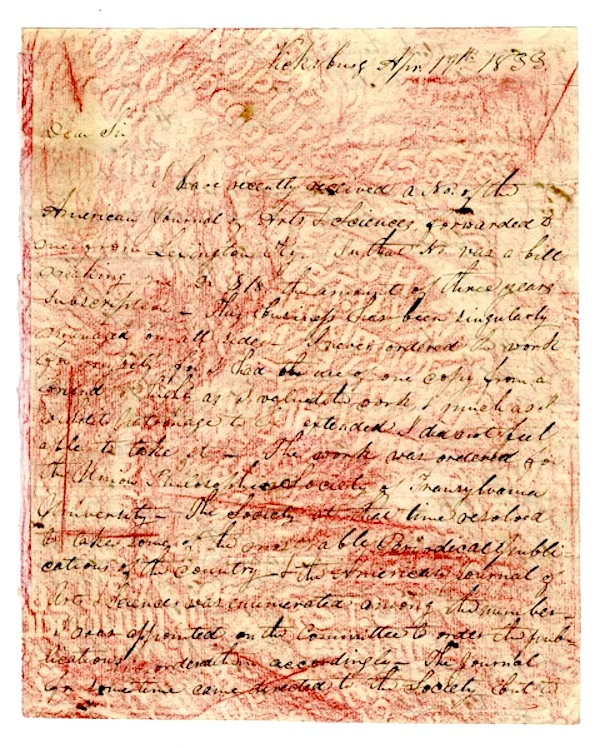 Vicksburg Apr. 17th 1833
Dear Sir
I have recently received a No. of the
American Journal of Arts & Sciences forwarded to
me from Lexington Ky. In that No. was a bill
making me Dr $18 the amount of three years
subscription – This business has been singularly
managed on all sides – I never ordered the work
for myself for I had the use of one copy from a
friend & high as I valued the work, & much as I
wished its patronage to be extended I did not feel
able to take it – The work was ordered for
the Union Philosophical Society of Transylvania
University – The Society at that time resolved
to take some of the most able Periodical publi-
cations of the Country – & the American Journal of
Arts & Sciences was enumerated among the number –
I was appointed on the Committee to order the pub-
lications & ordered them accordingly – The Journal
for some time came directed to the Society but